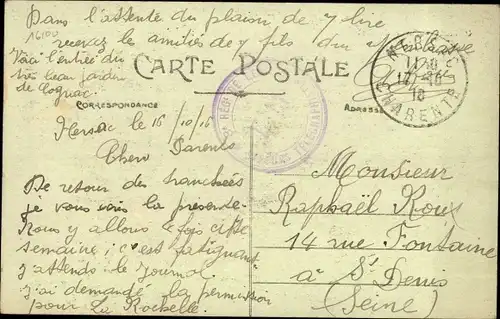 Dans l'attente du plaisir de y lire
recevez les amitiés de y fils du
16100
Voici l'entrée du
très beau jardin
de Cognac.
CARTE POSTALE
CORRESPONDANCE
ADRESSE
CHARENTE
Mersac le 15/10/16
Chers Parents
De retour des tranchées
je vous écris la présente
Nous y allons 4 fois cette
semaine; c'est fatiguant
j'attends le journal
j'ai demandé la permission
pour La Rochelle.
Monsieur
Raphaël Roux
14 rue Fontaine
à St Denis
(Seine)